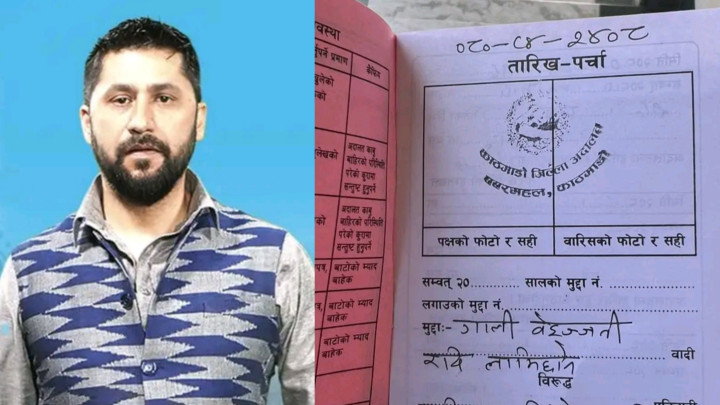 वस्था
पूर्पने प्रमाण कैफियत
अदालत काबु
बाहिरको परिस्थिति
परेको कुरामा
सन्तुष्ट हुनुपर्ने
को
अदालत काबु
बाहिरको परिस्थिति
परेको कुरामा
सन्तुष्ट हुनुपर्ने
बाटोको म्याद
बाहेक
बाटोको म्याद
बाहेक
बाटोको म्याद
बाहेक
०८०-C४-२४०८
तारिख-पर्चा
काठमाडौं जिल्ला अदालत
बबरमहल, काठमाडौं
पक्षको फोटो र सही वारिसको फोटो र सही
सम्बत् २०.......... सालको मुद्दा नं. ..................
लगाउको मुद्दा नं. ..................
मुद्दाः- गाली वेइज्जती
रवि लामिछाने .......... वादी
विरूद्ध